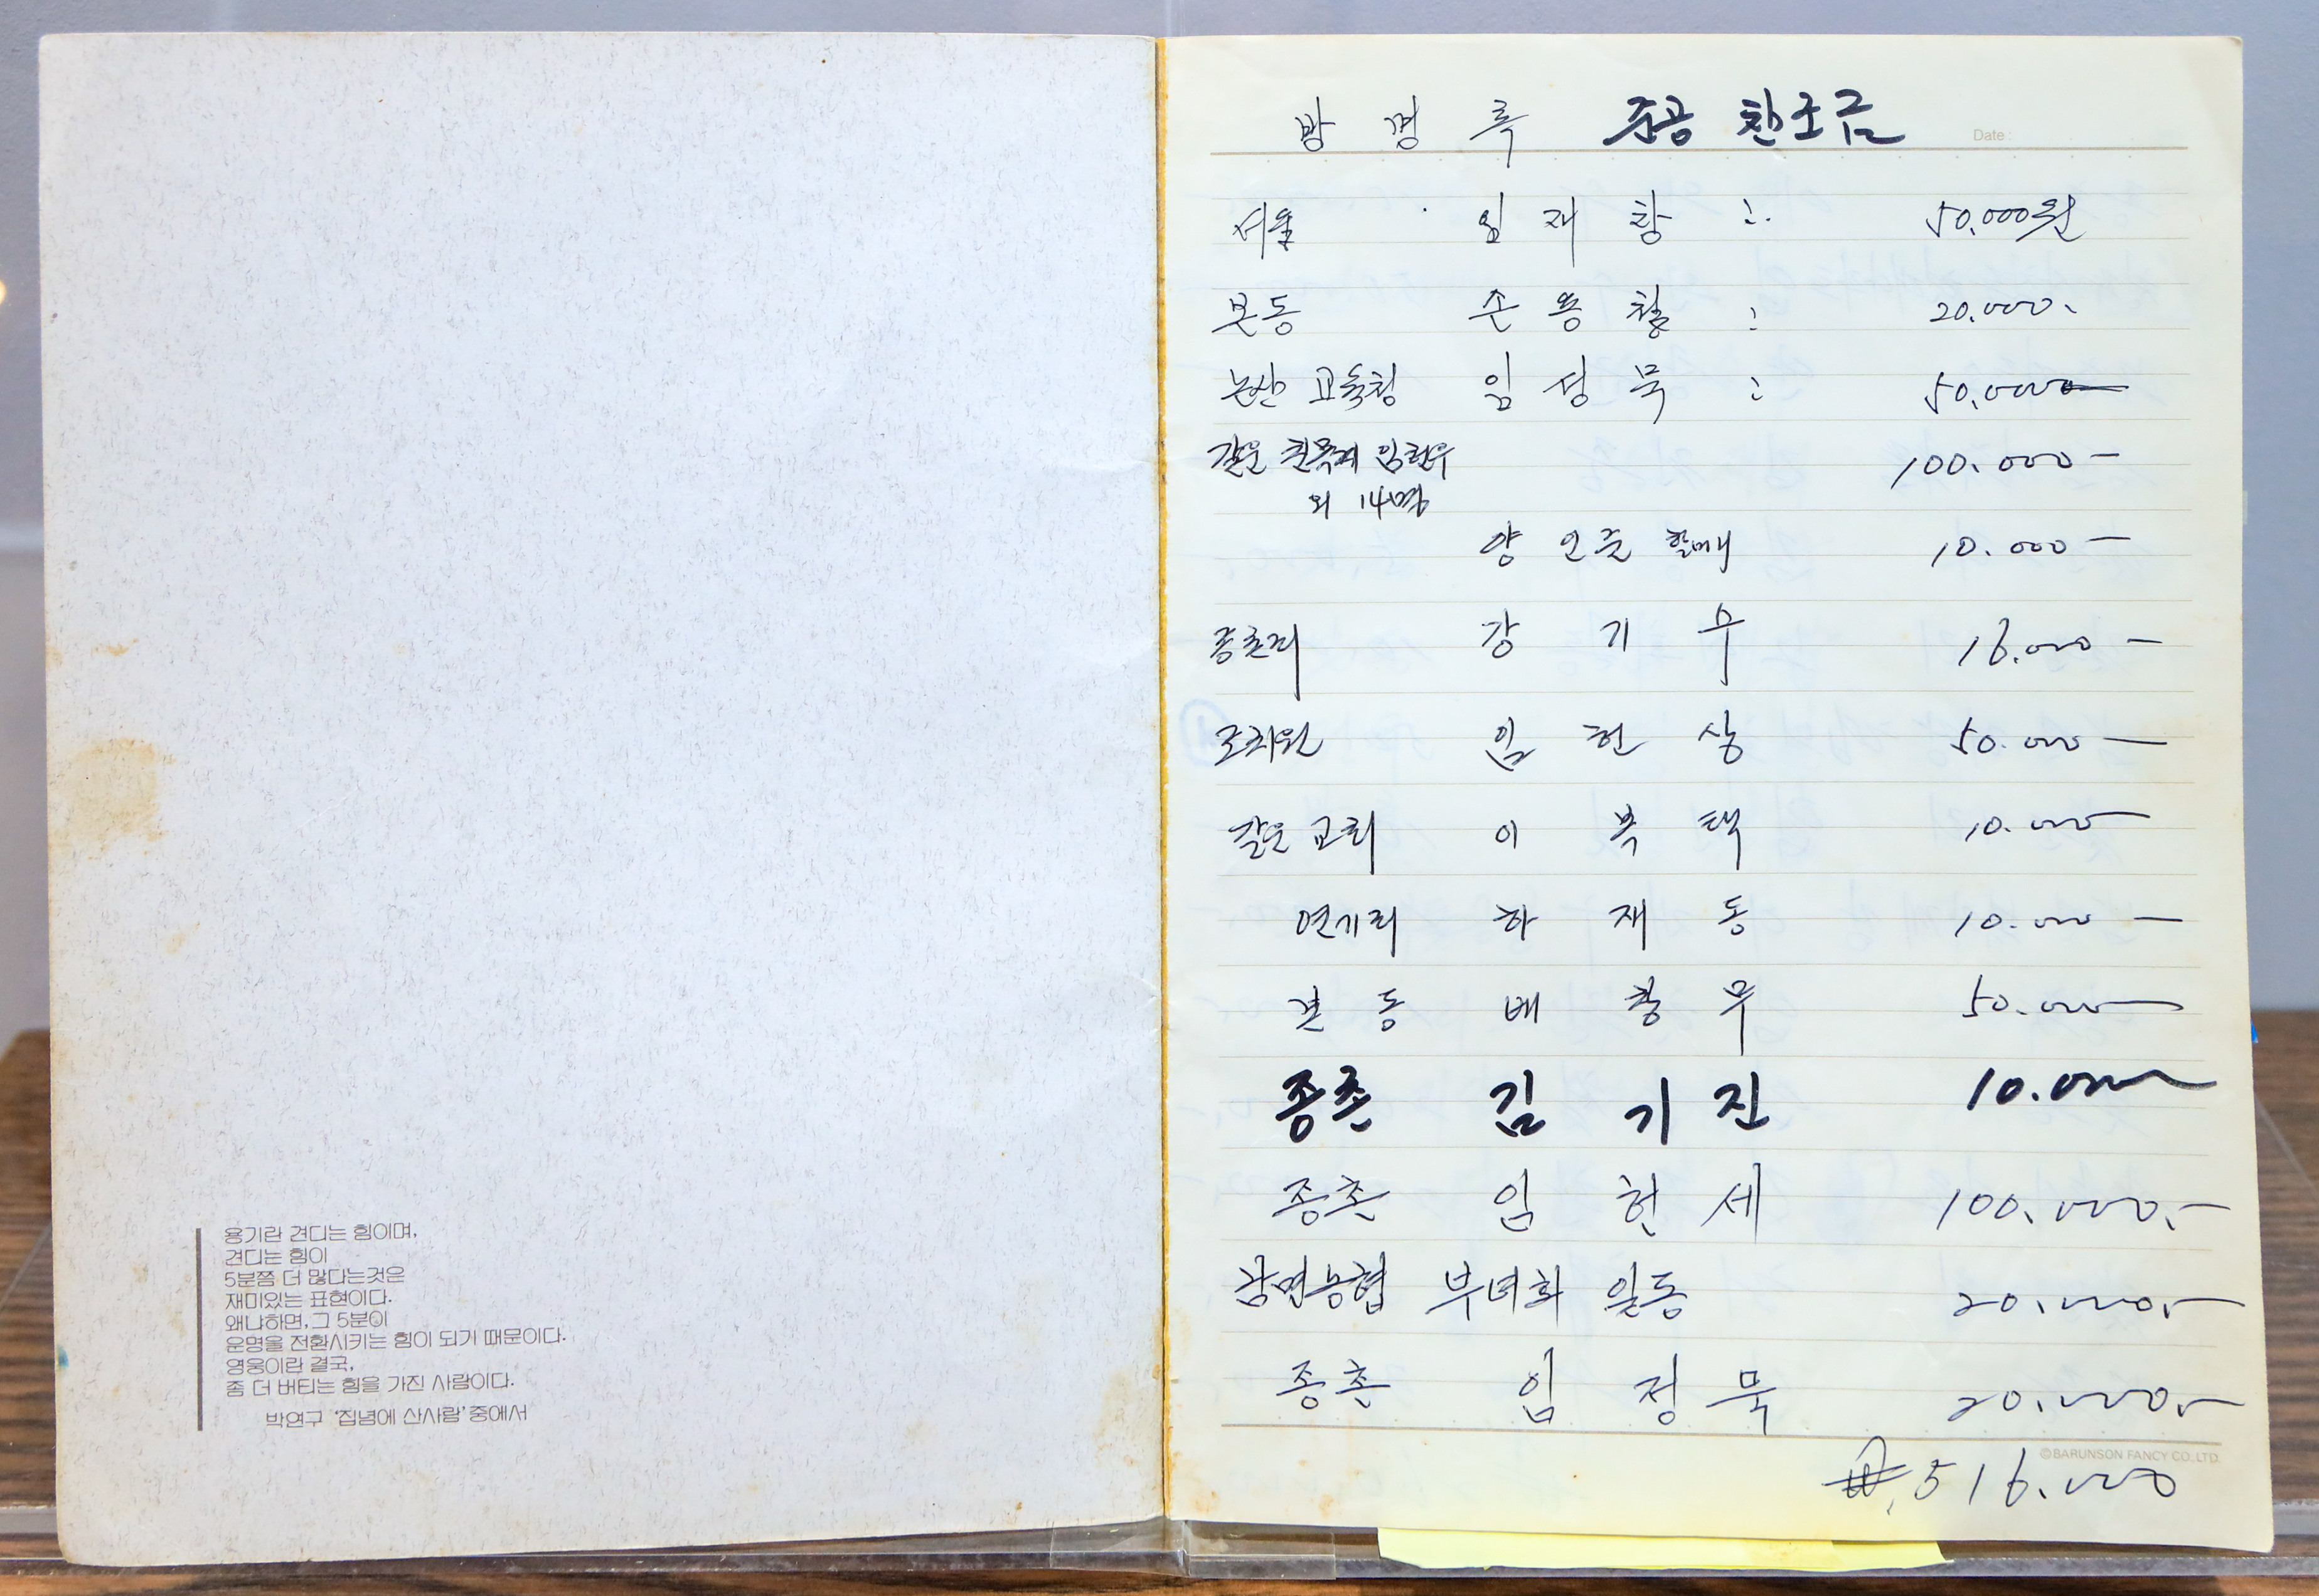 용기란 견디는 힘이며,
견디는 힘이
5분쯤 더 많다는것은
재미있는 표현이다.
왜냐하면, 그 5분이
운명을 전환시키는 힘이 되기 때문이다.
영웅이란 결국,
좀 더 버티는 힘을 가진 사람이다.
박연구 '집념에 산사람' 중에서
방 명 록 준공 찬조금
Date:
서울 임 재 창 : 50.000원
본동 손 용 철 : 20.000.
논산 교육청 임 성 묵 : 50.000
갈운 친목계 임헌우 100.000 -
외 14명
양 인순 할매 10.000 -
종촌리 강 기 우 16.000 -
조치원 임 헌 상 50.000 -
갈운 교회 이 복 택 10.000
연기리 하 재 동 10.000 -
본 동 배 창 무 50.000
종촌 김 기 진 10.000
종촌 임 헌 세 100.000.-
남면농협 부녀회 일동 20.000.-
종촌 임 정 묵 20.000.-
©BARUNSON FANCY CO., LTD.
₩.516.000